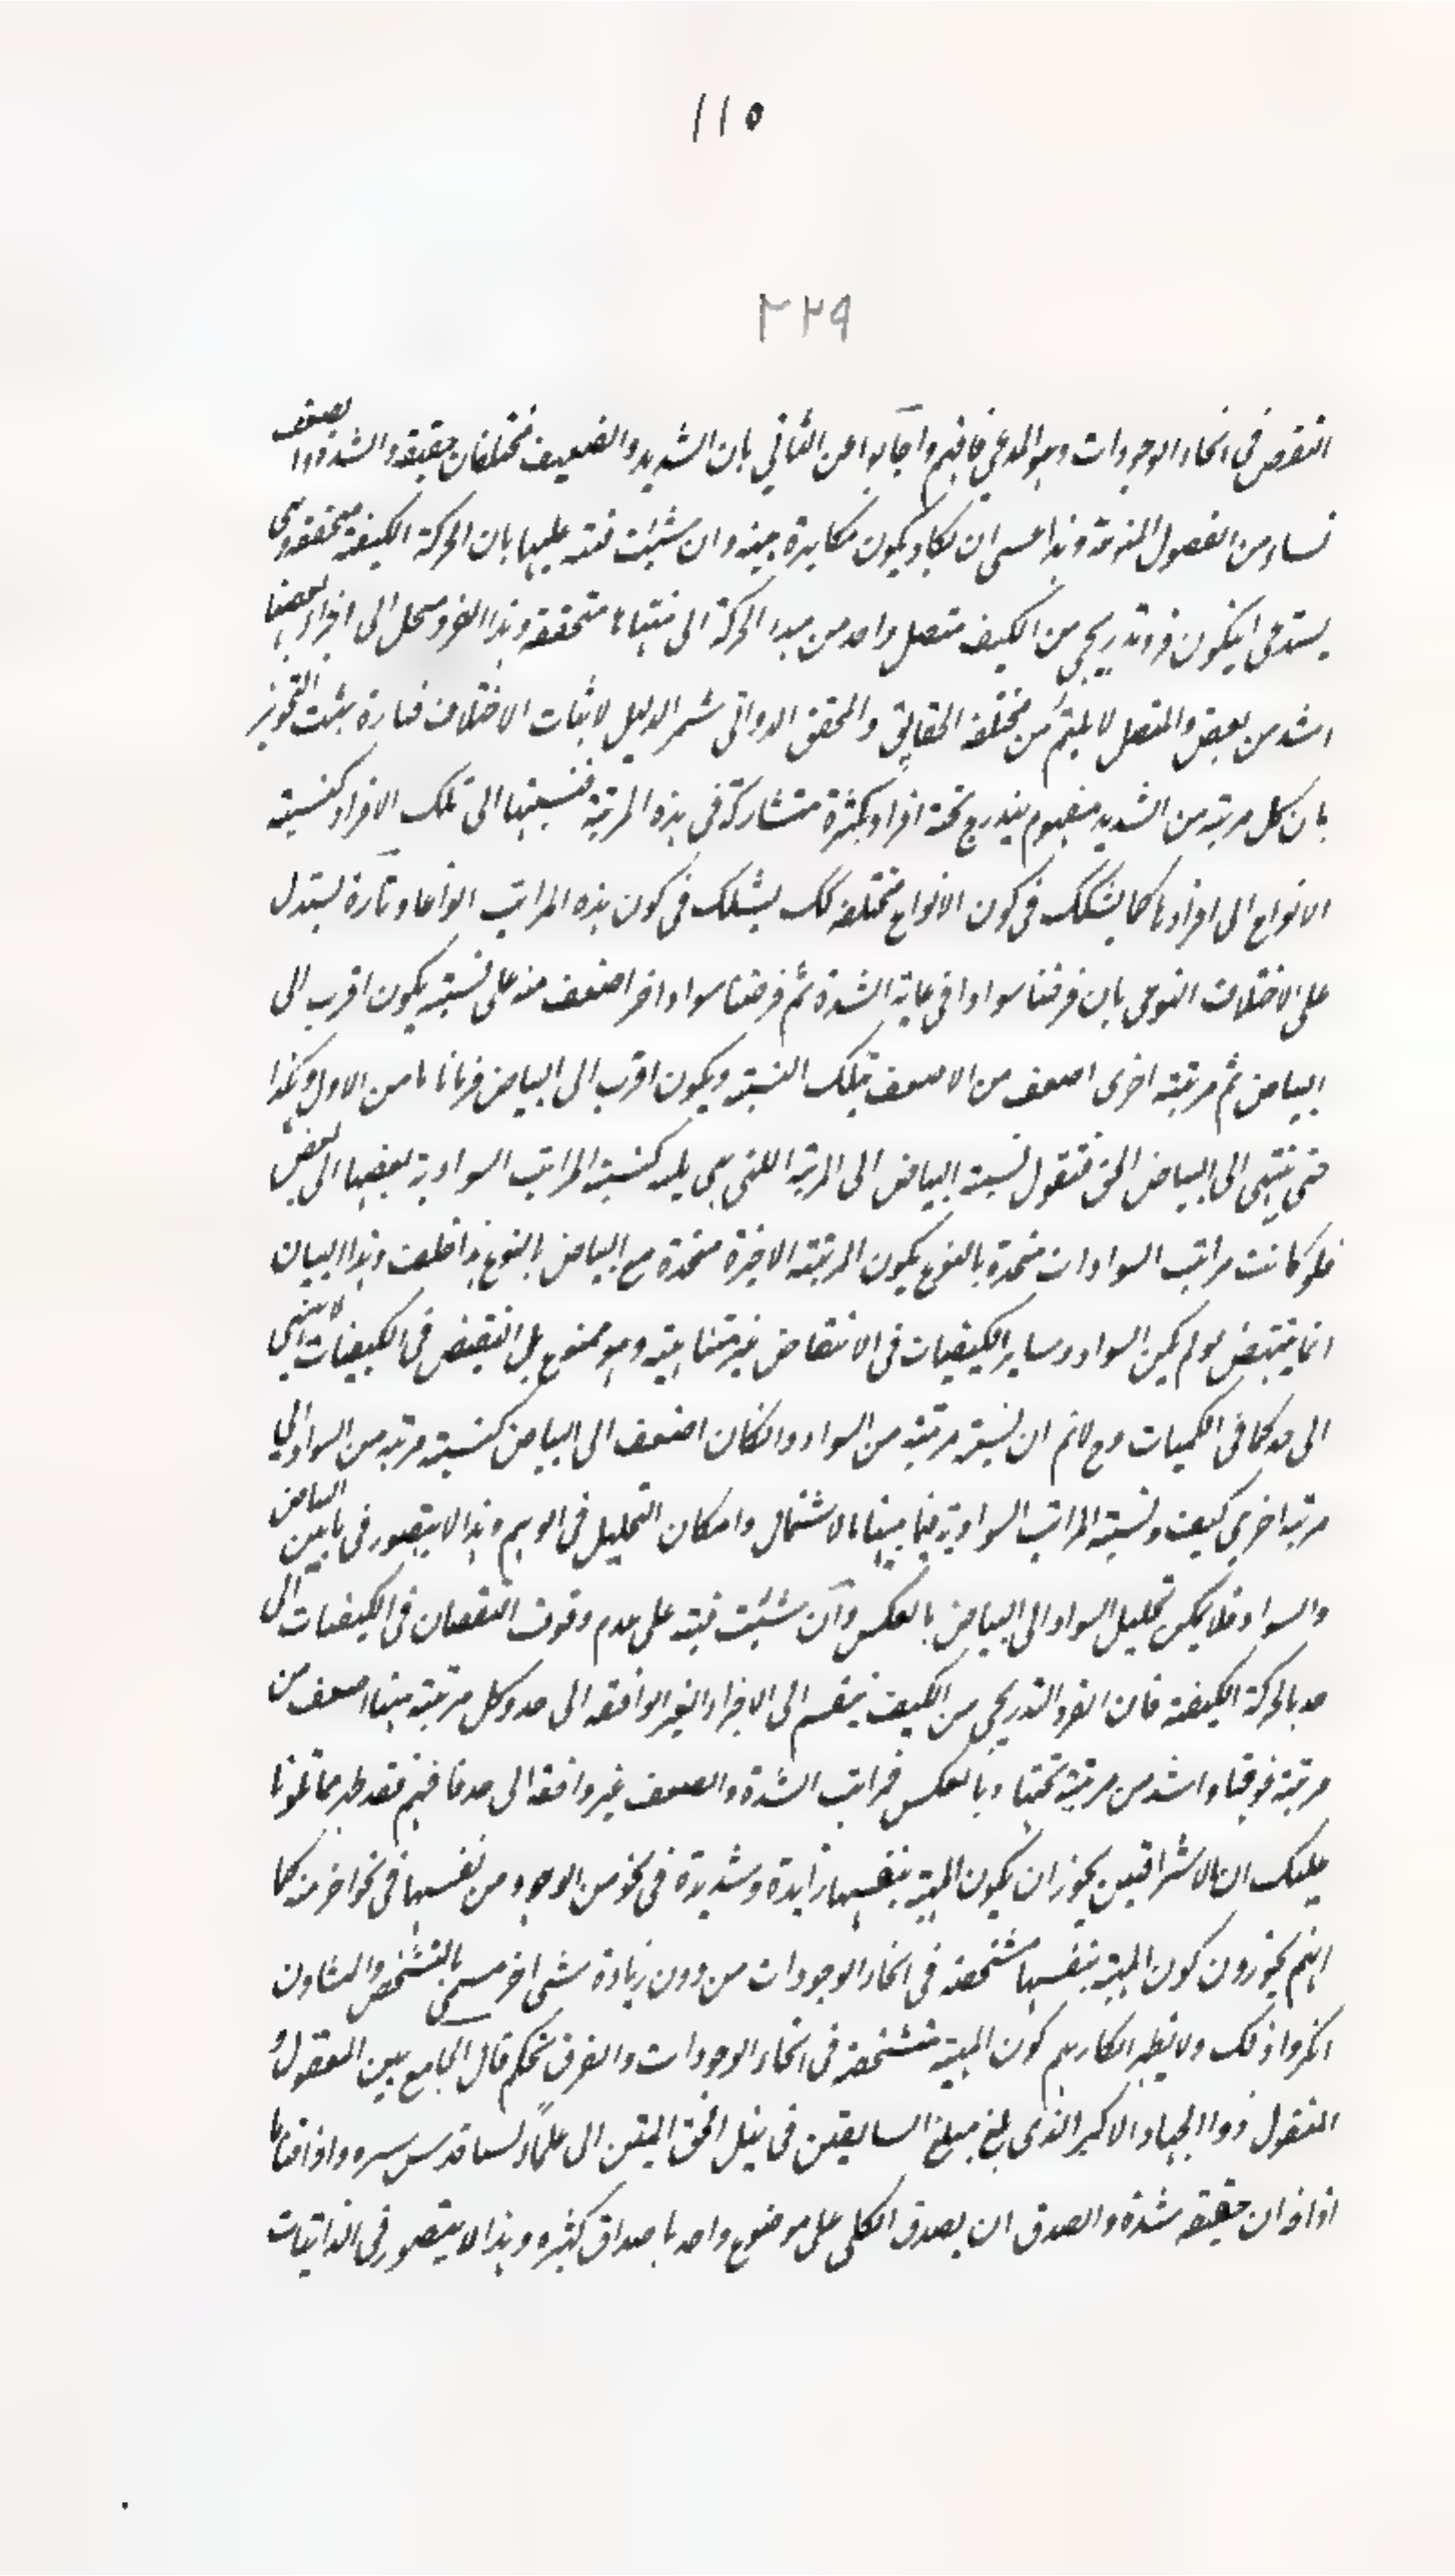 ١١٥
٢٢٩
النقص في انحاء الوجودات وهو المدعى فافهم واجابوا عن الثاني بان الشديد والضعيف مختلفان حقيقة والشدة والضعف
نساء من الفصول المنوعة وهذا عسى ان يكاد يكون مكابرة بينة وان شئت فنبه عليها بان الحركة الكيفية متحققة وهى
يستدعى ان يكون فرد تدريجى من الكيف متصل واحد من مبداء الحركة الى منتهاها متحققة وهذا الفرد ينحل الى افراد بعضها
اشد من بعض والمتصل لا يلتئم من مختلفة الحقايق والمحقق الدوانى شمر الذيل لاثبات الاختلاف فتارة يثبت التجويز
بان كل مرتبة من الشديد مفهوم يندرج تحته افراد بكثرة متشاركة في هذه المرتبة فنسبتها الى تلك الافراد كنسبة
الانواع الى افرادها كما يشكك في كون الانواع مختلفة كك يشكك في كون هذه المراتب انواعا وتارة يستدل
على الاختلاف النوعى بان فرضنا سوادا في غاية الشدة ثم فرضنا سوادا اخر اضعف منه على نسبة يكون اقرب الى
البياض ثم مرتبة اخرى اضعف من الاضعف بتلك النسبة ويكون اقرب الى البياض من الاول وهكذا
حتى ينتهى الى البياض الحق فنقول نسبة البياض الى المرتبة اللتى هى يليه كنسبة المراتب السوادية بعضها الى بعض
فلو كانت مراتب السوادات متحدة بالنوع يكون المرتبة الاخيرة متحدة مع البياض بالنوع هذا خلف وهذا البيان
انما ينتهض لو لم يكن السواد وساير الكيفيات في الانتقاض غير متناهية وهو ممنوع بل النقيض في الكيفيات لا ينتهى
الى حد كما في الكميات وح لا نم ان نسبة مرتبة من السواد وان كان اضعف الى البياض كنسبة مرتبة من السواد الى
مرتبة اخرى كيف ونسبة المراتب السوادية فيما بينها بالاشتمال وامكان التحليل في الوهم وهذا لا يتصور في ما بين البياض
والسواد فلا يمكن تحليل السواد الى البياض بالعكس وان شئت فنبه على عدم وقوف النقصان في الكيفيات الى
حد بالحركة الكيفية فان الفرد التدريجى من الكيف ينقسم الى الافراد الغير الواقفة الى حد وكل مرتبة منها اضعف من
مرتبة فوقها واشد من مرتبة تحتها وبالعكس فمراتب الشدة والضعف غير واقفة الى حد فافهم فقد ظهر مما تلونا
عليك ان الاشراقيين يجوز ان يكون المهية بنفسها زايدة وشديدة في نحو من الوجود من نفسها في نحو اخر منه كما
انهم يجوزون كون المهية بنفسها متشخصة في انحاء الوجودات من دون زيادة شى اخر مسمى بالتشخص والمشاون
انكروا ذلك ولا يظهر انكارهم كون المهية متشخصة في انحاء الوجودات والفرق تحكم قال الجامع بين المعقول و
المنقول ذو الجهاد الاكبر الذى بلغ مبلغ السابقين في نيل الحق اليقين قدس سره
ان حقيقة شدة والصدق ان يصدق الكلى على موضوع واحد باصداق كثيرة وهذا لا يتصور في الذاتيات